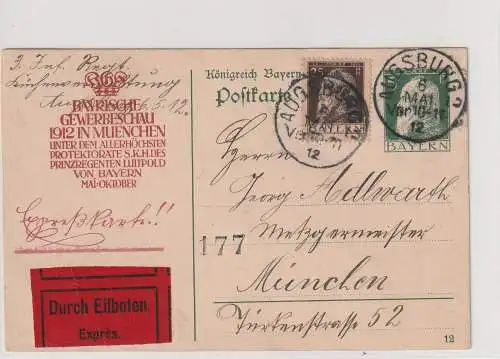 3. Inf. Regt.
Küchenverwaltung
6.5.12.
BAYRISCHE
GEWERBESCHAU
1912 IN MUENCHEN
UNTER DEM ALLERHÖCHSTEN
PROTEKTORATE S.K.H. DES
PRINZREGENTEN LUITPOLD
VON BAYERN
MAI-OKTOBER
Expreßkarte!!
Königreich Bayern
Postkarte
25
BAYERN
AUGSBURG
12
AUGSBURG 2
6
MAI
12
BAYERN
Herrn
Georg
Metzgermeister
177
München
Türkenstrasse 52
Durch Eilboten
Exprès.
12